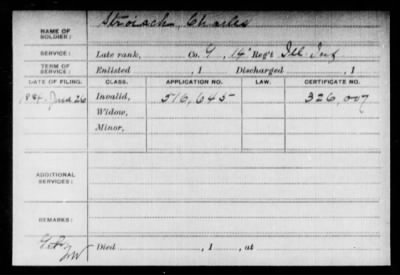 NAME OF SOLDIER: Stroiach, Charles
SERVICE: Late rank, Co. G, 14" Reg't Ill. Inf
TERM OF SERVICE: Enlisted , 1 Discharged , 1
DATE OF FILING. CLASS. APPLICATION NO. LAW. CERTIFICATE NO.
1884, June 26 Invalid, 516,645 326,007
Widow,
Minor,
ADDITIONAL SERVICES:
REMARKS:
Died , 1 , at